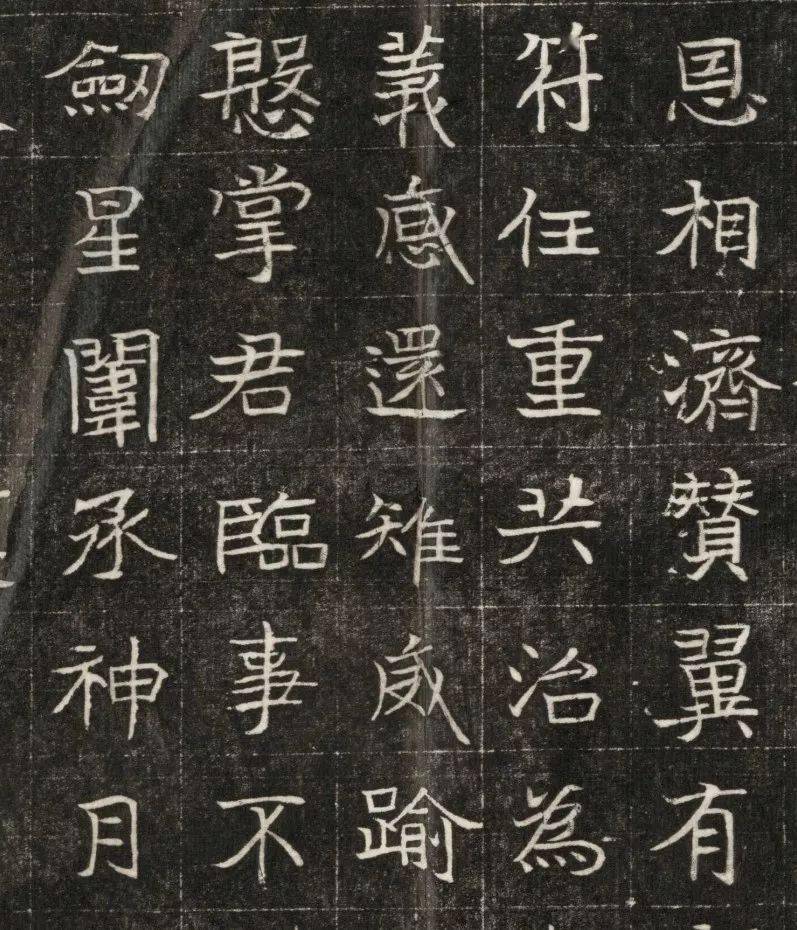 恩相濟贊翼有
符任重共治為
義感還雉威踰
慇掌君臨事不
劒星闈承神月